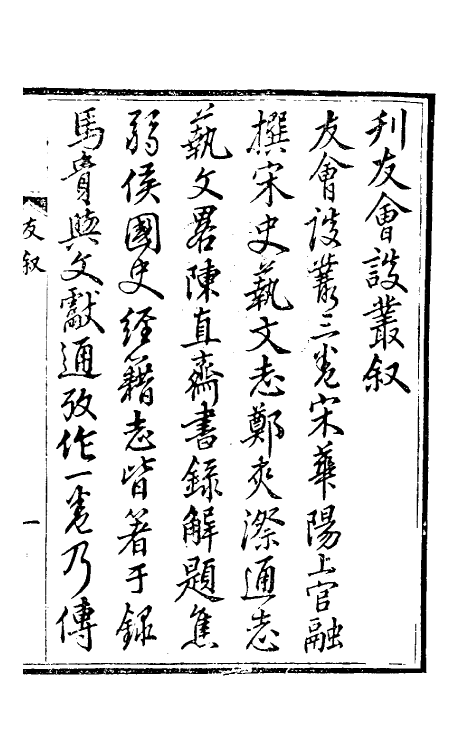 刋友會談叢叙
友會談叢三卷宋華陽上官融
撰宋史藝文志鄭夾漈通志
藝文畧陳直齋書録解題焦
弱侯國史經籍志皆著于録
馬貴與文獻通攷作一卷乃傳
友叙
一